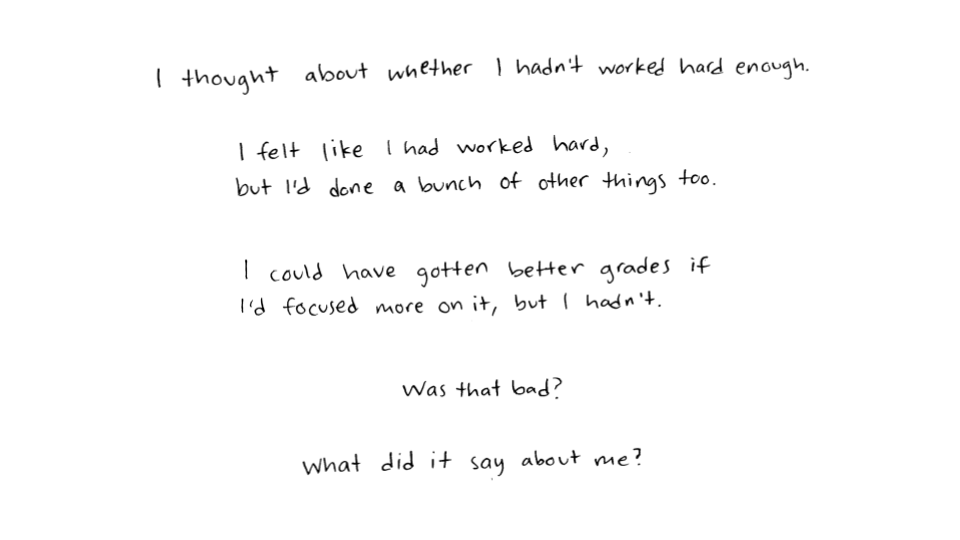 I thought about whether I hadn't worked hard enough.
I felt like I had worked hard,
but I'd done a bunch of other things too.
I could have gotten better grades if
I'd focused more on it, but I hadn't.
Was that bad?
What did it say about me?